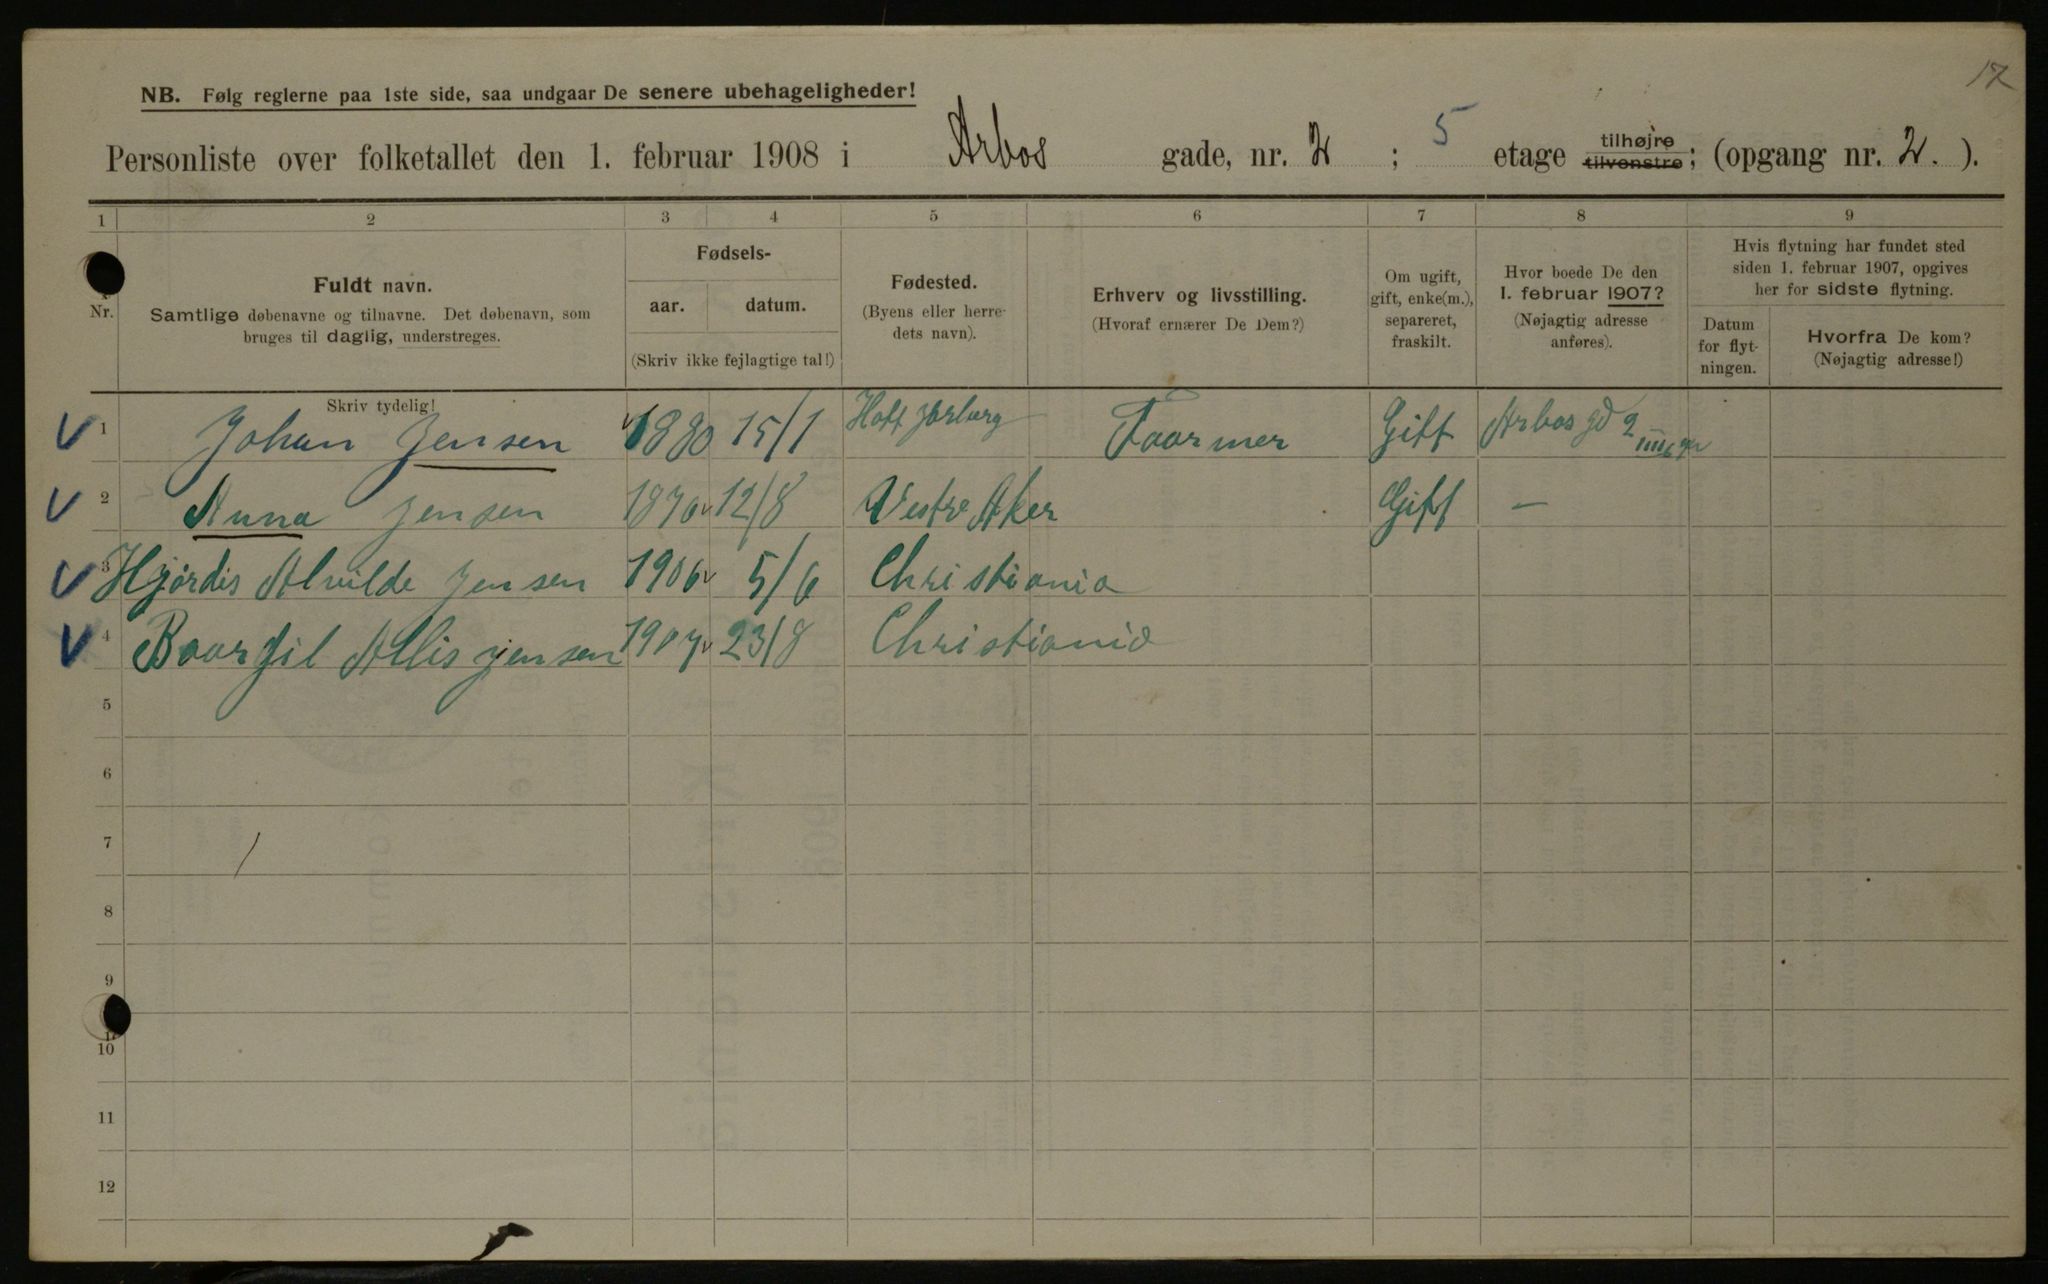 17
NB. Følg reglerne paa 1ste side, saa undgaar De senere ubehageligheder!
Personliste over folketallet den 1. februar 1908 i Arbos gade, nr. 2 ; 5 etage tilhøjre tilvenstre; (opgang nr. 2. ).
1 2 3 4 5 6 7 8 9
Nr.
Fuldt navn.
Samtlige døbenavne og tilnavne. Det døbenavn, som
bruges til daglig, understreges.
Skriv tydelig!
Fødsels-
aar. datum.
(Skriv ikke fejlagtige tal!)
Fødested.
(Byens eller herre-
dets navn).
Erhverv og livsstilling.
(Hvoraf ernærer De Dem?)
Om ugift,
gift, enke(m.),
separeret,
fraskilt.
Hvor boede De den
1. februar 1907?
(Nøjagtig adresse
anføres).
Hvis flytning har fundet sted
siden 1. februar 1907, opgives
her for sidste flytning.
Datum
for flyt-
ningen.
Hvorfra De kom?
(Nøjagtig adresse!)
1 Johan Jensen 1880 15/1 Hoff Faarmer Gift Arbos gd 2
2 Anna Jensen 1870 12/8 Vestre Aker Gift —
3 Hjørdis Alvilde Jensen 1906 5/6 Christiania
4 Baargil Allis Jensen 1907 23/8 Christiania
5
6
7
8
9
10
11
12